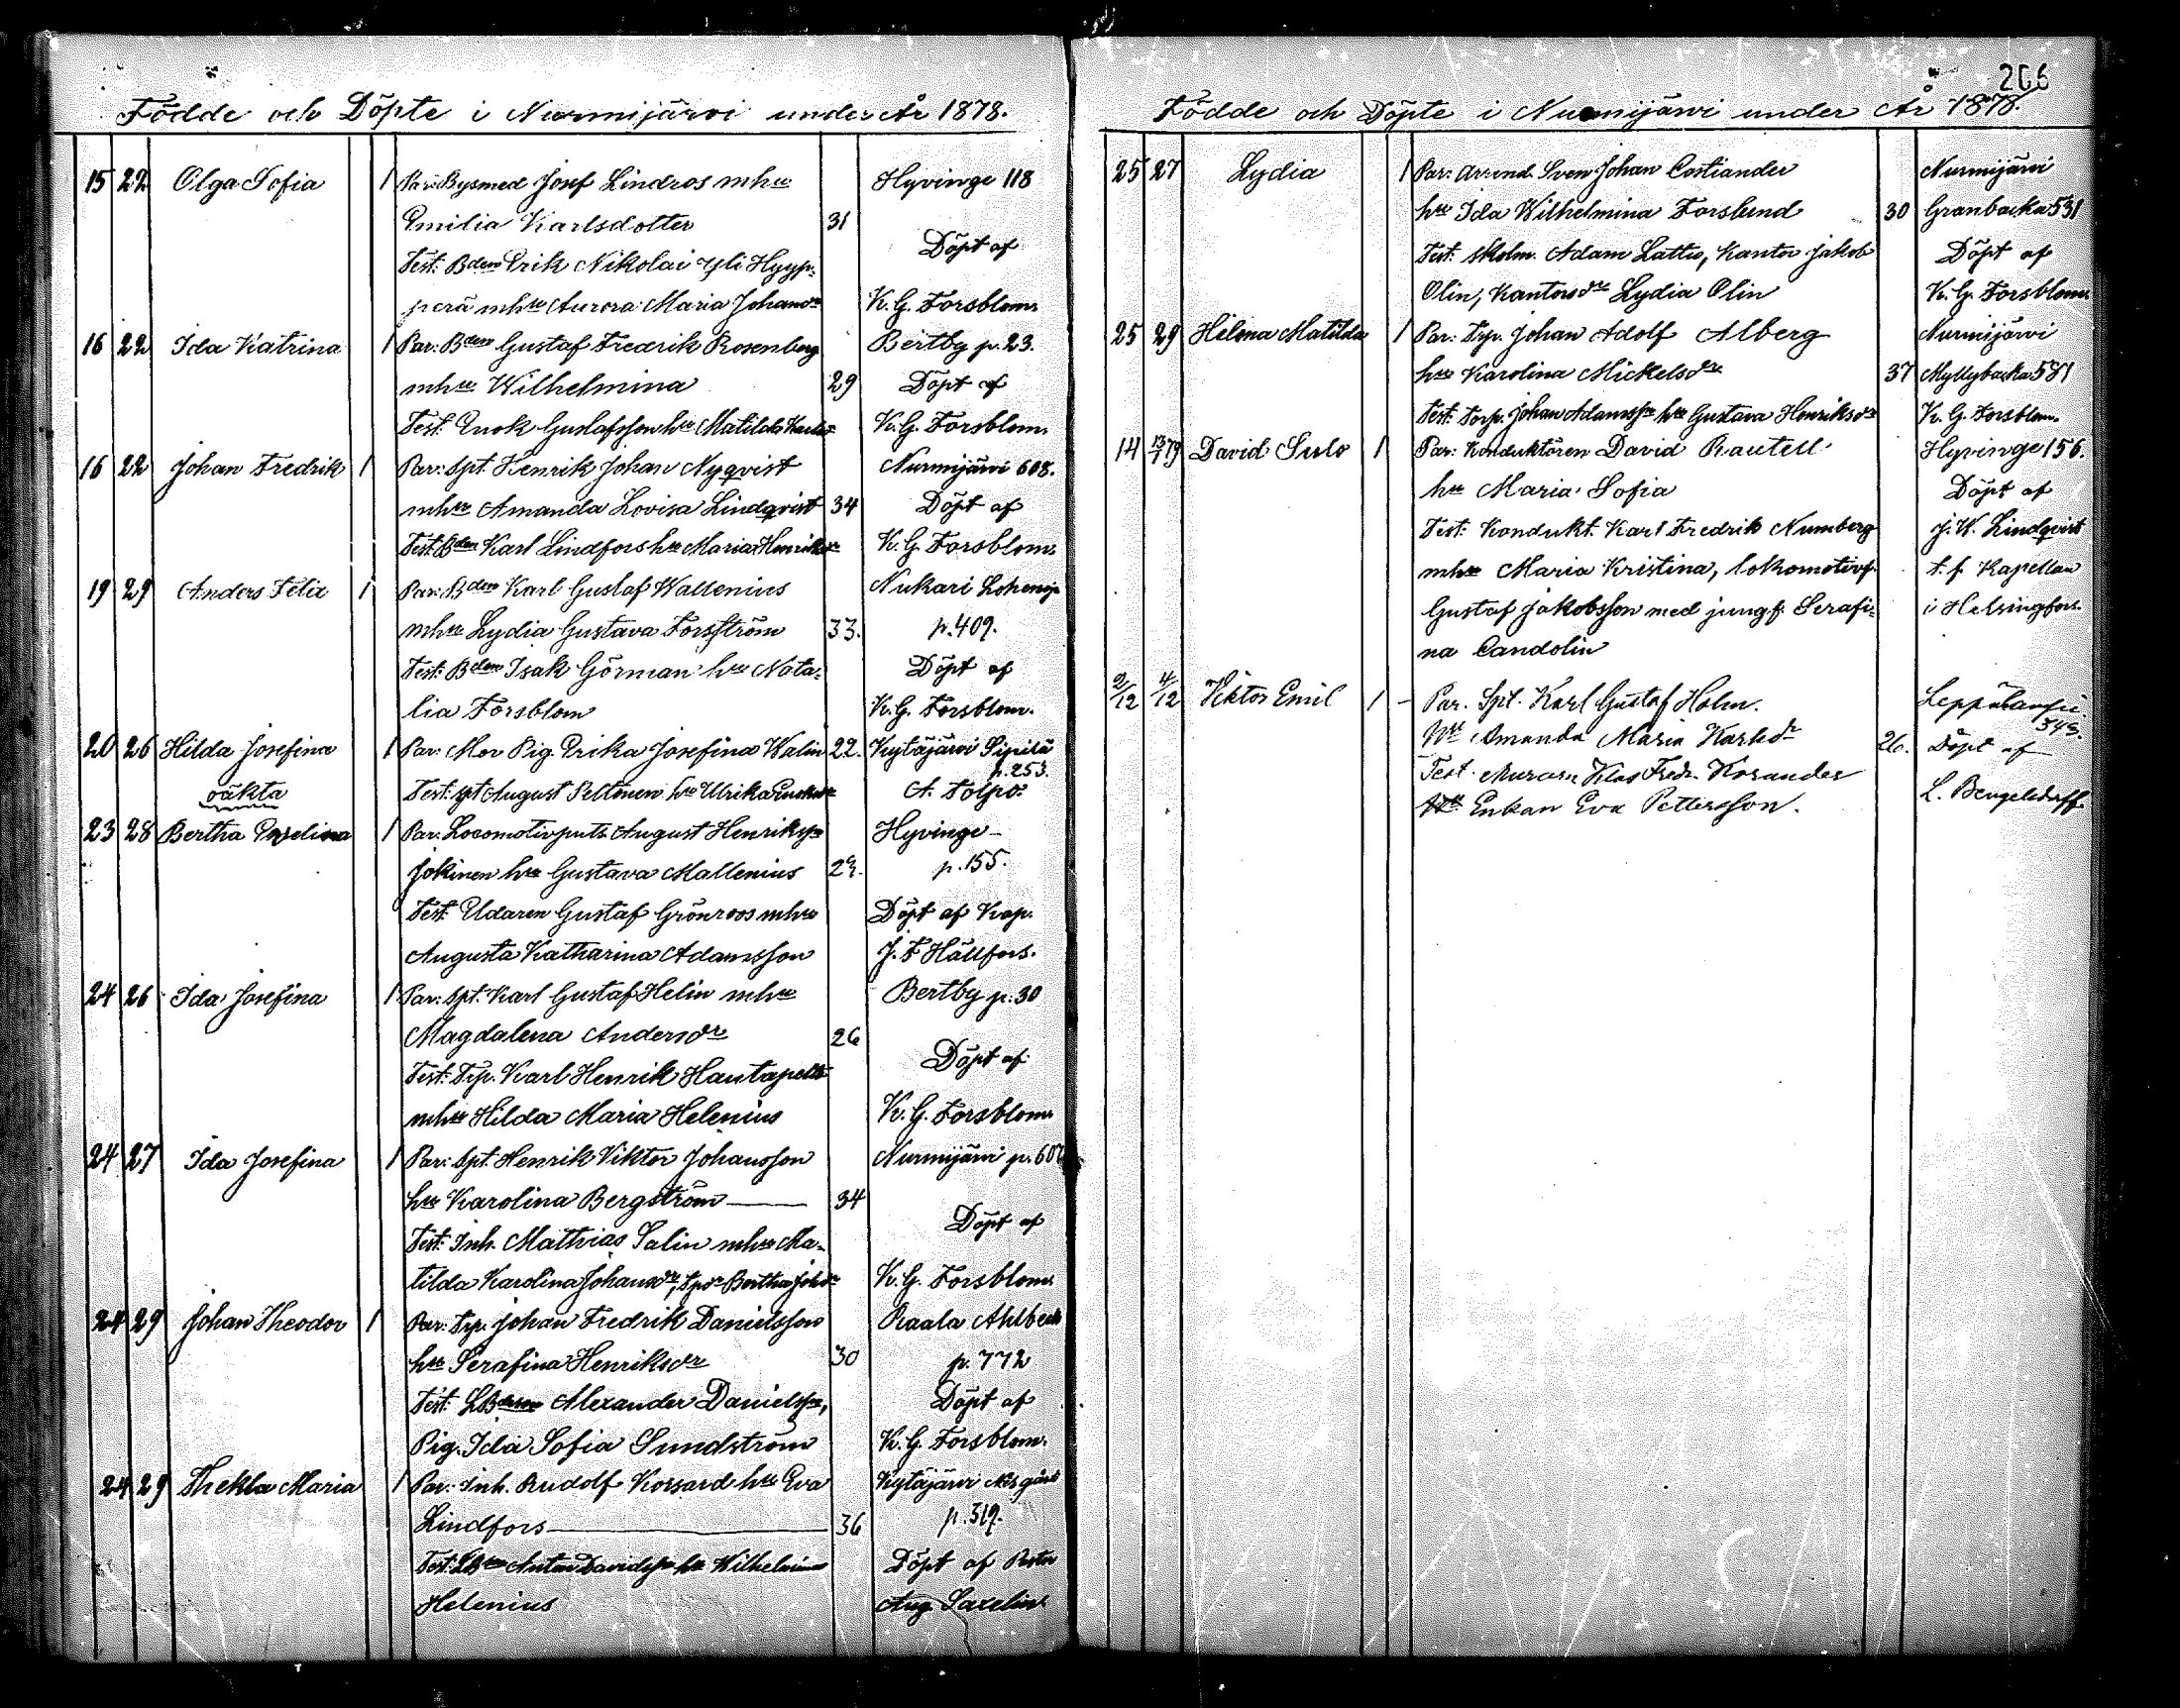 Födde och Döpte i Nurmijärvi under År 1878.
15 22 Olga Sofia 1 Par: Bysmed Josef Lindros mhu Hyvinge 118
Emilia Karlsdotter 31
Test: Bden Erik Nikolai Yli Hyyp- Döpt af
perä mhu Aurora Maria Johansdr K. G. Forsblom.
16 22 Ida Katrina 1 Par: Bden Gustaf Fredrik Rosenberg Bertby p. 23.
mhu Wilhelmina 29 Döpt af
Test: Enok Gustafsson hu Matilda K. G. Forsblom.
16 22 Johan Fredrik 1 Par: Spt. Henrik Johan Nyqvist Nurmijärvi 608.
mhu Amanda Lovisa Lindqvist 34 Döpt af
Test: Bden Karl Lindfors hu Maria Henriksdr K. G. Forsblom.
19 29 Anders Felix 1 Par: Bden Karl Gustaf Wallenius Nukari
mhu Lydia Gustava Forsström 33. p. 409.
Test: Bden Isak Görman hu Nata- Döpt af
lia Forsblom K. G. Forsblom.
20 26 Hilda Josefina 1 Par: Mor Pig. Erika Josefina Walin 22. Kytäjärvi Sipilä
p. 253.
oäkta Test: Spt August Peltonen hu Ulrika
23 28 Bertha 1 Par: Locomotivputs August Henrikssn Hyvinge
Jokinen hu Gustava Mallenius p. 155.
Test: Gustaf Grönroos mhu Döpt af Kap.
Augusta Katharina Adamsson J. F. Hällfors.
24 26 Ida Josefina 1 Par: Spt. Karl Gustaf Helin mhu Bertby p. 30
Magdalena Andersdr 26
Döpt af
Test: Trp. Karl Henrik Hautapelto
mhu Hilda Maria Helenius K. G. Forsblom
24 27 Ida Josefina 1 Par: Spt. Henrik Viktor Johansson Nurmijärvi
hu Karolina Bergström 34
Döpt af
Test: Inh. Mathias Salin mhu Ma-
tilda Karolina Johansdr, Bertha K. G. Forsblom
24 29 Johan Theodor 1 Par: Trp. Johan Fredrik Danielsson Raala
hu Serafina Henriksdr 30 p. 772
Test: Alexander Danielssn, Döpt af
Pig. Ida Sofia Sundström K. G. Forsblom.
24 29 Thekla Maria 1 Par: Inh. Rudolf Korsard hu Eva Kytäjärvi
Lindfors 36 p. 319.
Test: Anton Davidssn hu Wilhelmina Döpt af
Helenius Aug. Saxelin
206
Födde och Döpte i Nurmijärvi under År 1878.
25 27 Lydia 1 Par: Arrend. Sven Johan Castiander Nurmijärvi
hu Ida Wilhelmina Forslund 30 Granbacka 531
Test: Skolm. Adam Lattu, Kantor Jakob Döpt af
Olin, Kantorsdr Lydia Olin K. G. Forsblom
25 29 Helena Matilda 1 Par: Trp. Johan Adolf Alberg Nurmijärvi
hu Karolina Mickelsdr 37 Myllybacka 581
Test: Torp. Johan Adamssn hu Gustava Henriksdr K. G. Forsblom.
14 13/1 79 David Sulo 1 Par: Konduktören David Rautell Hyvinge 156.
hu Maria Sofia Döpt af
Test: Kondukt. Karl Fredrik Numberg J. W. Lindqvist
mhu Maria Kristina, lokomotivf. t. f. Kapellan
Gustaf Jakobsson med jungf. Serafi- i Helsingfors.
na Candolin
2/12 4/12 Viktor Emil 1 Par. Spt. Karl Gustaf Holm. Leppälampi
343.
Hu Amanda Maria Karlsdr 26. Döpt af
Test. Muraren Klas Fredr. Korander
Enkan Eva Pettersson. L. Bengelsdorff